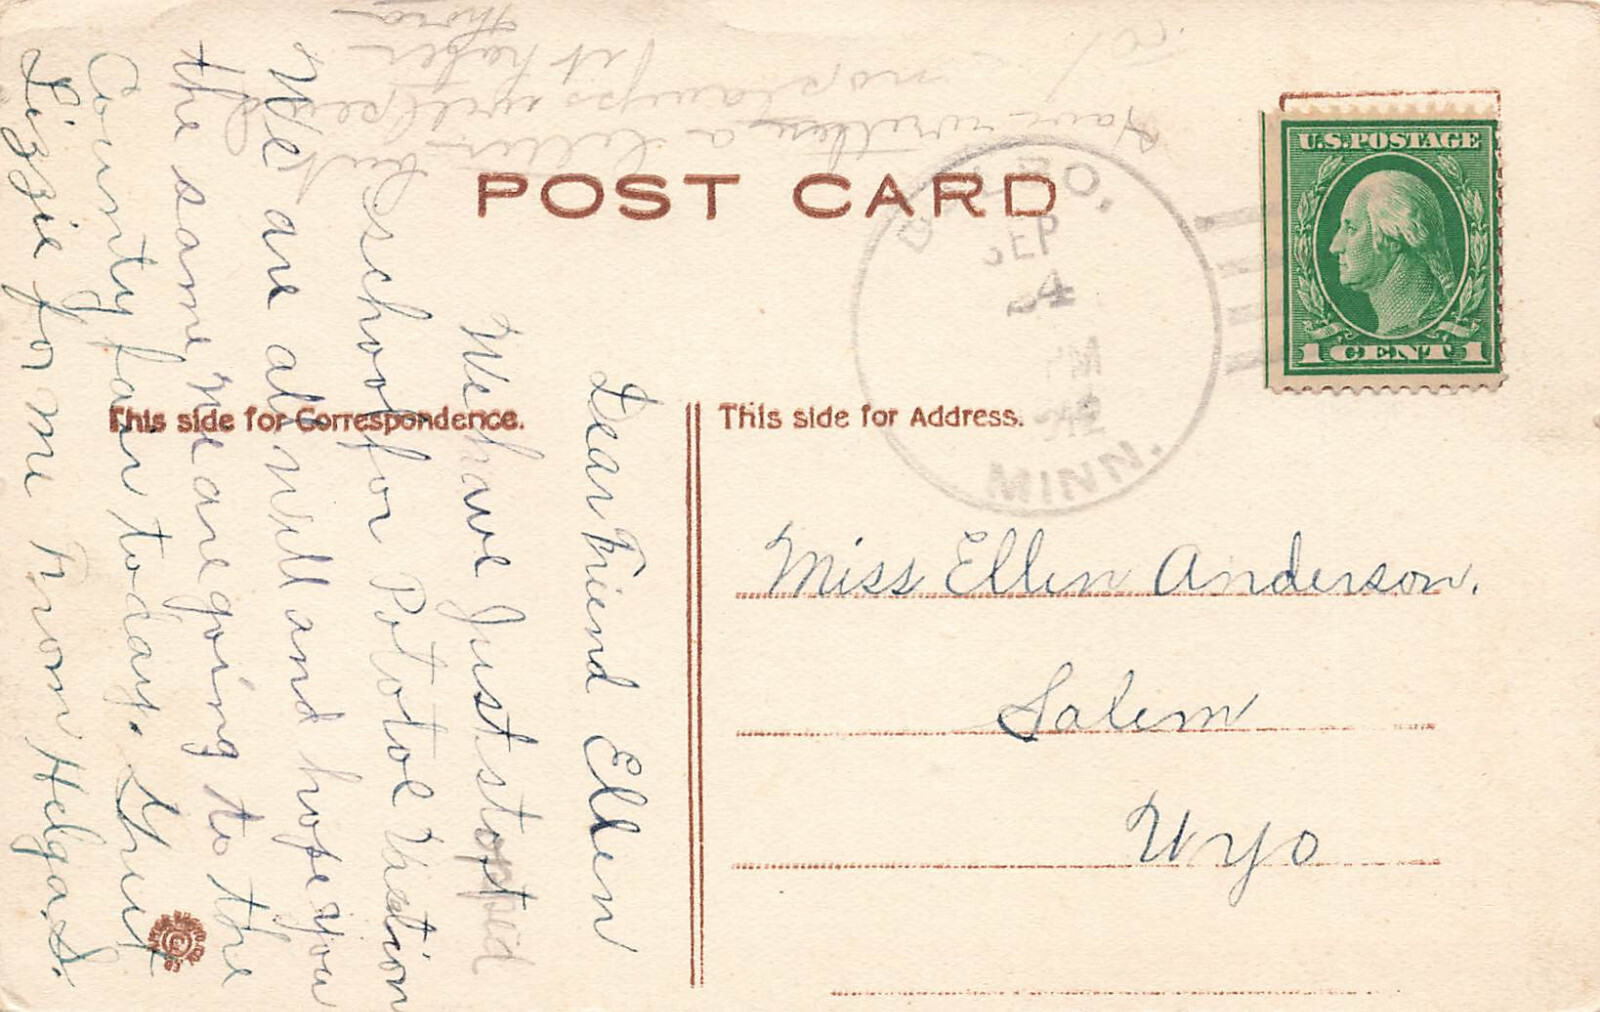 Have written a letter but
no stamps will send
yet
POST CARD
U.S. POSTAGE
1 CENT 1
SEP
4
PM
MINN.
This side for Correspondence.
This side for Address.
Dear Friend Ellen
We have Just stopped
school for Potatoe Vacation
We are all well and hope you
the same We are going to the
County fair to day. Greet
Lizzie for me From Helga S.
Miss Ellen Anderson.
Salem
Wyo